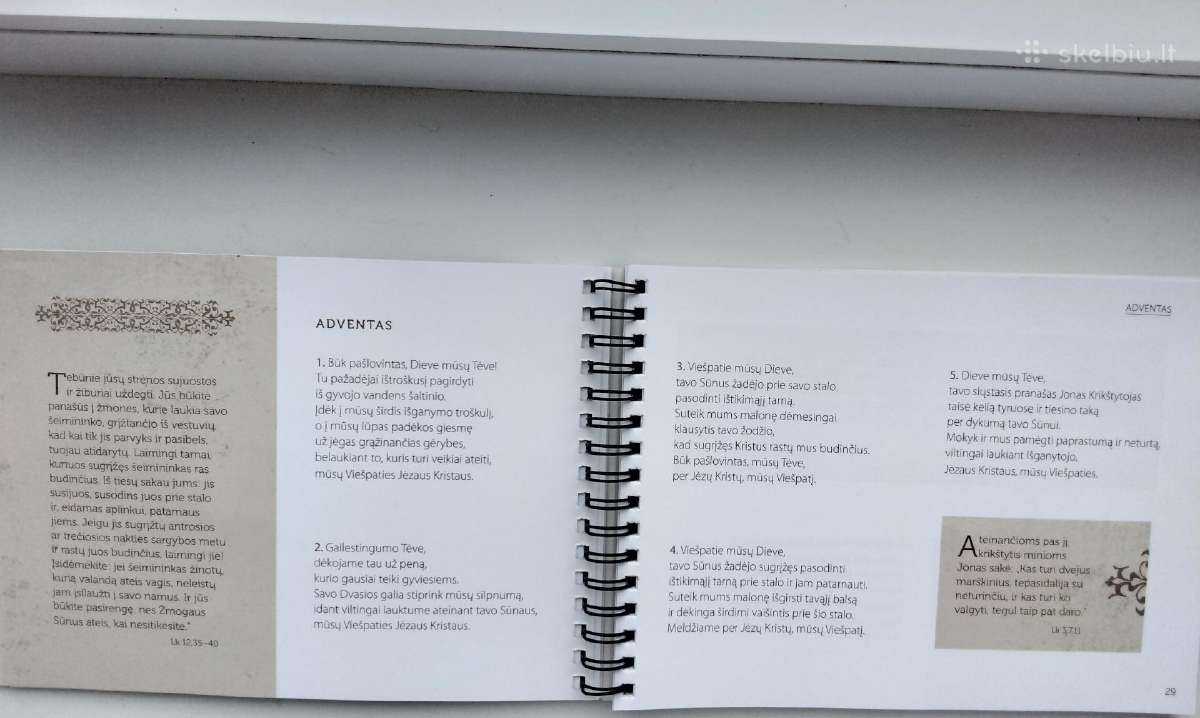 skelbiu.lt
Tebūnie jūsų strėnos sujuostos
ir žiburiai uždegti. Jūs būkite
panašūs į žmones, kurie laukia savo
šeimininko, grįžtančio iš vestuvių,
kad kai tik jis parvyks ir pasibels,
tuojau atidarytų. Laimingi tarnai,
kuriuos sugrįžęs šeimininkas ras
budinčius. Iš tiesų sakau jums: jis
susijuos, susodins juos prie stalo
ir, eidamas aplinkui, patarnaus
jiems. Jeigu jis sugrįžtų antrosios
ar trečiosios nakties sargybos metu
ir rastų juos budinčius, laimingi jie!
Įsidėmėkite: jei šeimininkas žinotų,
kurią valandą ateis vagis, neleistų
jam įsilaužti į savo namus. Ir jūs
būkite pasirengę, nes Žmogaus
Sūnus ateis, kai nesitikėsite."
Lk 12,35–40
ADVENTAS
1. Būk pašlovintas, Dieve mūsų Tėve!
Tu pažadėjai ištroškusį pagirdyti
iš gyvojo vandens šaltinio.
Įdėk į mūsų širdis išganymo troškulį,
o į mūsų lūpas padėkos giesmę
už jėgas grąžinančias gėrybes,
belaukiant to, kuris turi veikiai ateiti,
mūsų Viešpaties Jėzaus Kristaus.
2. Gailestingumo Tėve,
dėkojame tau už peną,
kurio gausiai teiki gyviesiems.
Savo Dvasios galia stiprink mūsų silpnumą,
idant viltingai lauktume ateinant tavo Sūnaus,
mūsų Viešpaties Jėzaus Kristaus.
ADVENTAS
3. Viešpatie mūsų Dieve,
tavo Sūnus žadėjo prie savo stalo
pasodinti ištikimąjį tarną.
Suteik mums malonę dėmesingai
klausytis tavo žodžio,
kad sugrįžęs Kristus rastų mus budinčius.
Būk pašlovintas, mūsų Tėve,
per Jėzų Kristų, mūsų Viešpatį.
4. Viešpatie mūsų Dieve,
tavo Sūnus žadėjo sugrįžęs pasodinti
ištikimąjį tarną prie stalo ir jam patarnauti.
Suteik mums malonę išgirsti tavąjį balsą
ir dėkinga širdimi vaišintis prie šio stalo.
Meldžiame per Jėzų Kristų, mūsų Viešpatį.
5. Dieve mūsų Tėve,
tavo siųstasis pranašas Jonas Krikštytojas
taisė kelią tyruose ir tiesino taką
per dykumą tavo Sūnui.
Mokyk ir mus pamėgti paprastumą ir neturtą,
viltingai laukiant Išganytojo,
Jėzaus Kristaus, mūsų Viešpaties.
Ateinančioms pas jį
krikštytis minioms
Jonas sakė: „Kas turi dvejus
marškinius, tepasidalija su
neturinčiu, ir kas turi ko
valgyti, tegul taip pat daro."
Lk 3,7.11
29